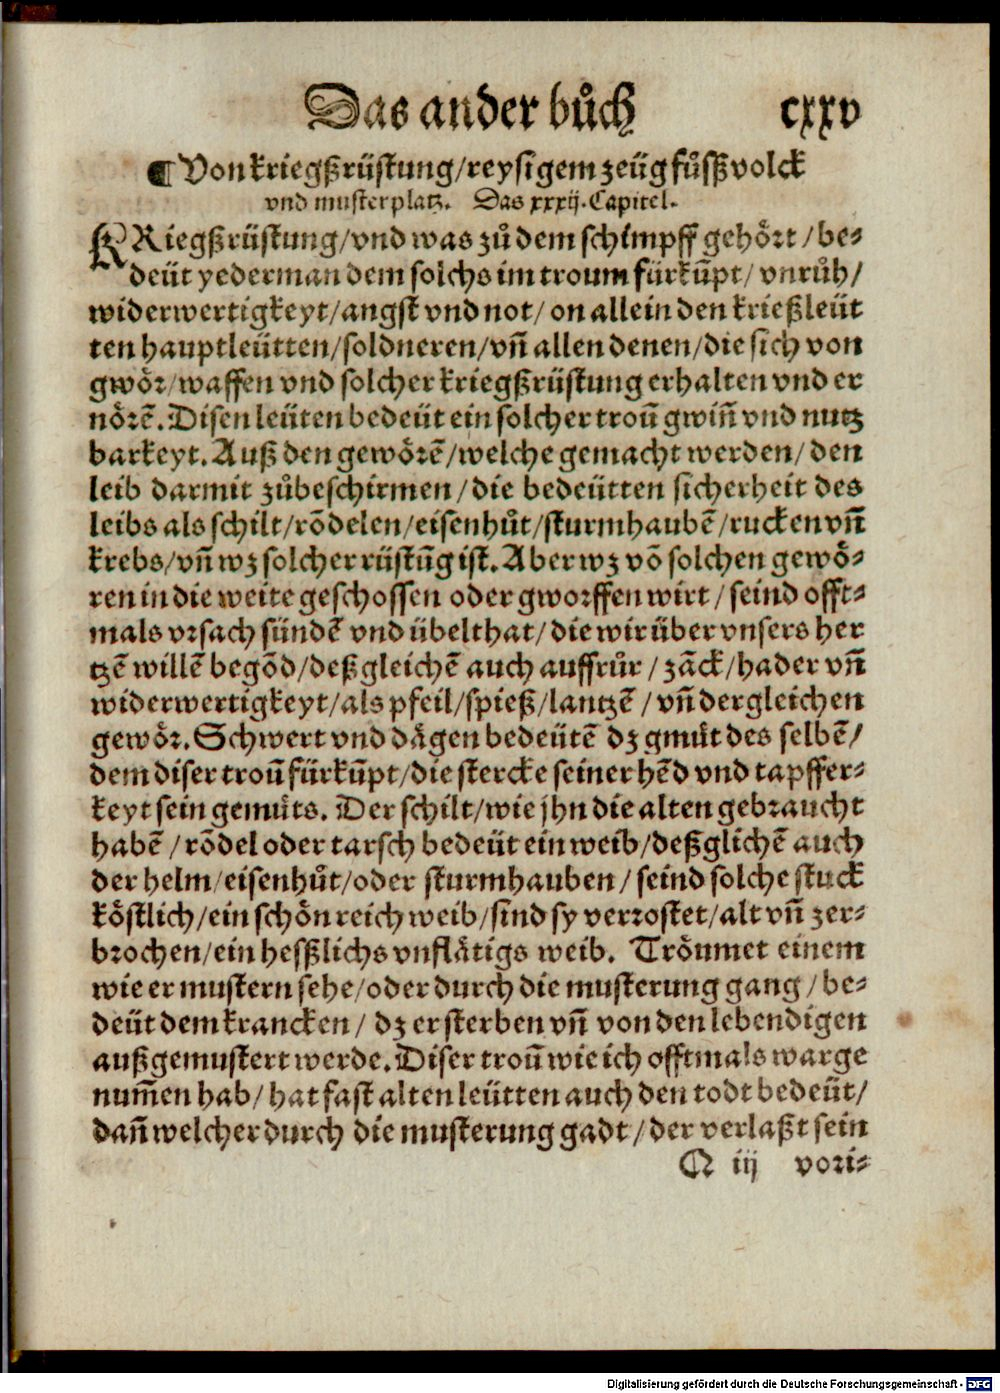 Das ander bůch cxxv
¶ Von kriegßrüstung/reysigem zeüg fůßvolck
vnd musterplatz. Das xxxij. Capitel.
KRiegßrüstung/vnd was zů dem schimpff gehört/be⸗
deüt yederman dem solchs im troum fürkūpt/vnrůh/
widerwertigkeyt/angst vnd not/on allein den krießleüt
ten hauptleütten/soldneren/vñ allen denen/die sich von
gwör/waffen vnd solcher kriegßrüstung erhalten vnd er
nörē. Disen leüten bedeüt ein solcher troū gwiñ vnd nutz
barkeyt. Auß den gewörē/welche gemacht werden/den
leib darmit zůbeschirmen/die bedeütten sicherheit des
leibs als schilt/rōdelen/eisenhůt/sturmhaubē/rucken vñ
krebs/vñ wz solcher rüstūg ist. Aber wz vō solchen gewö⸗
ren in die weite geschossen oder gworffen wirt/seind offt⸗
mals vrsach sündē vnd übelthat/die wir über vnsers her
tzē willē begōd/deßgleichē auch auffrůr/zāck/hader vñ
widerwertigkeyt/als pfeil/spieß/lantzē/vñ dergleichen
gewör. Schwert vnd dägen bedeütē dz gmüt des selbē/
dem diser troū fürkūpt/die stercke seiner hēd vnd tapffer⸗
keyt sein gemüts. Der schilt/wie jhn die alten gebraucht
habē/rōdel oder tarsch bedeüt ein weib/deßglichē auch
der helm/eisenhůt/oder sturmhauben/seind solche stuck
köstlich/ein schön reich weib/sind sy verrostet/alt vñ zer⸗
brochen/ein heßlichs vnflätigs weib. Tröumet einem
wie er mustern sehe/oder durch die musterung gang/be⸗
deüt dem krancken/dz er sterben vñ von den lebendigen
außgemustert werde. Diser troū wie ich offtmals warge
num̄en hab/hat fast alten leütten auch den todt bedeüt/
dañ welcher durch die musterung gadt/der verlaßt sein
Q iij vori⸗
Digitalisierung gefördert durch die Deutsche Forschungsgemeinschaft - DFG